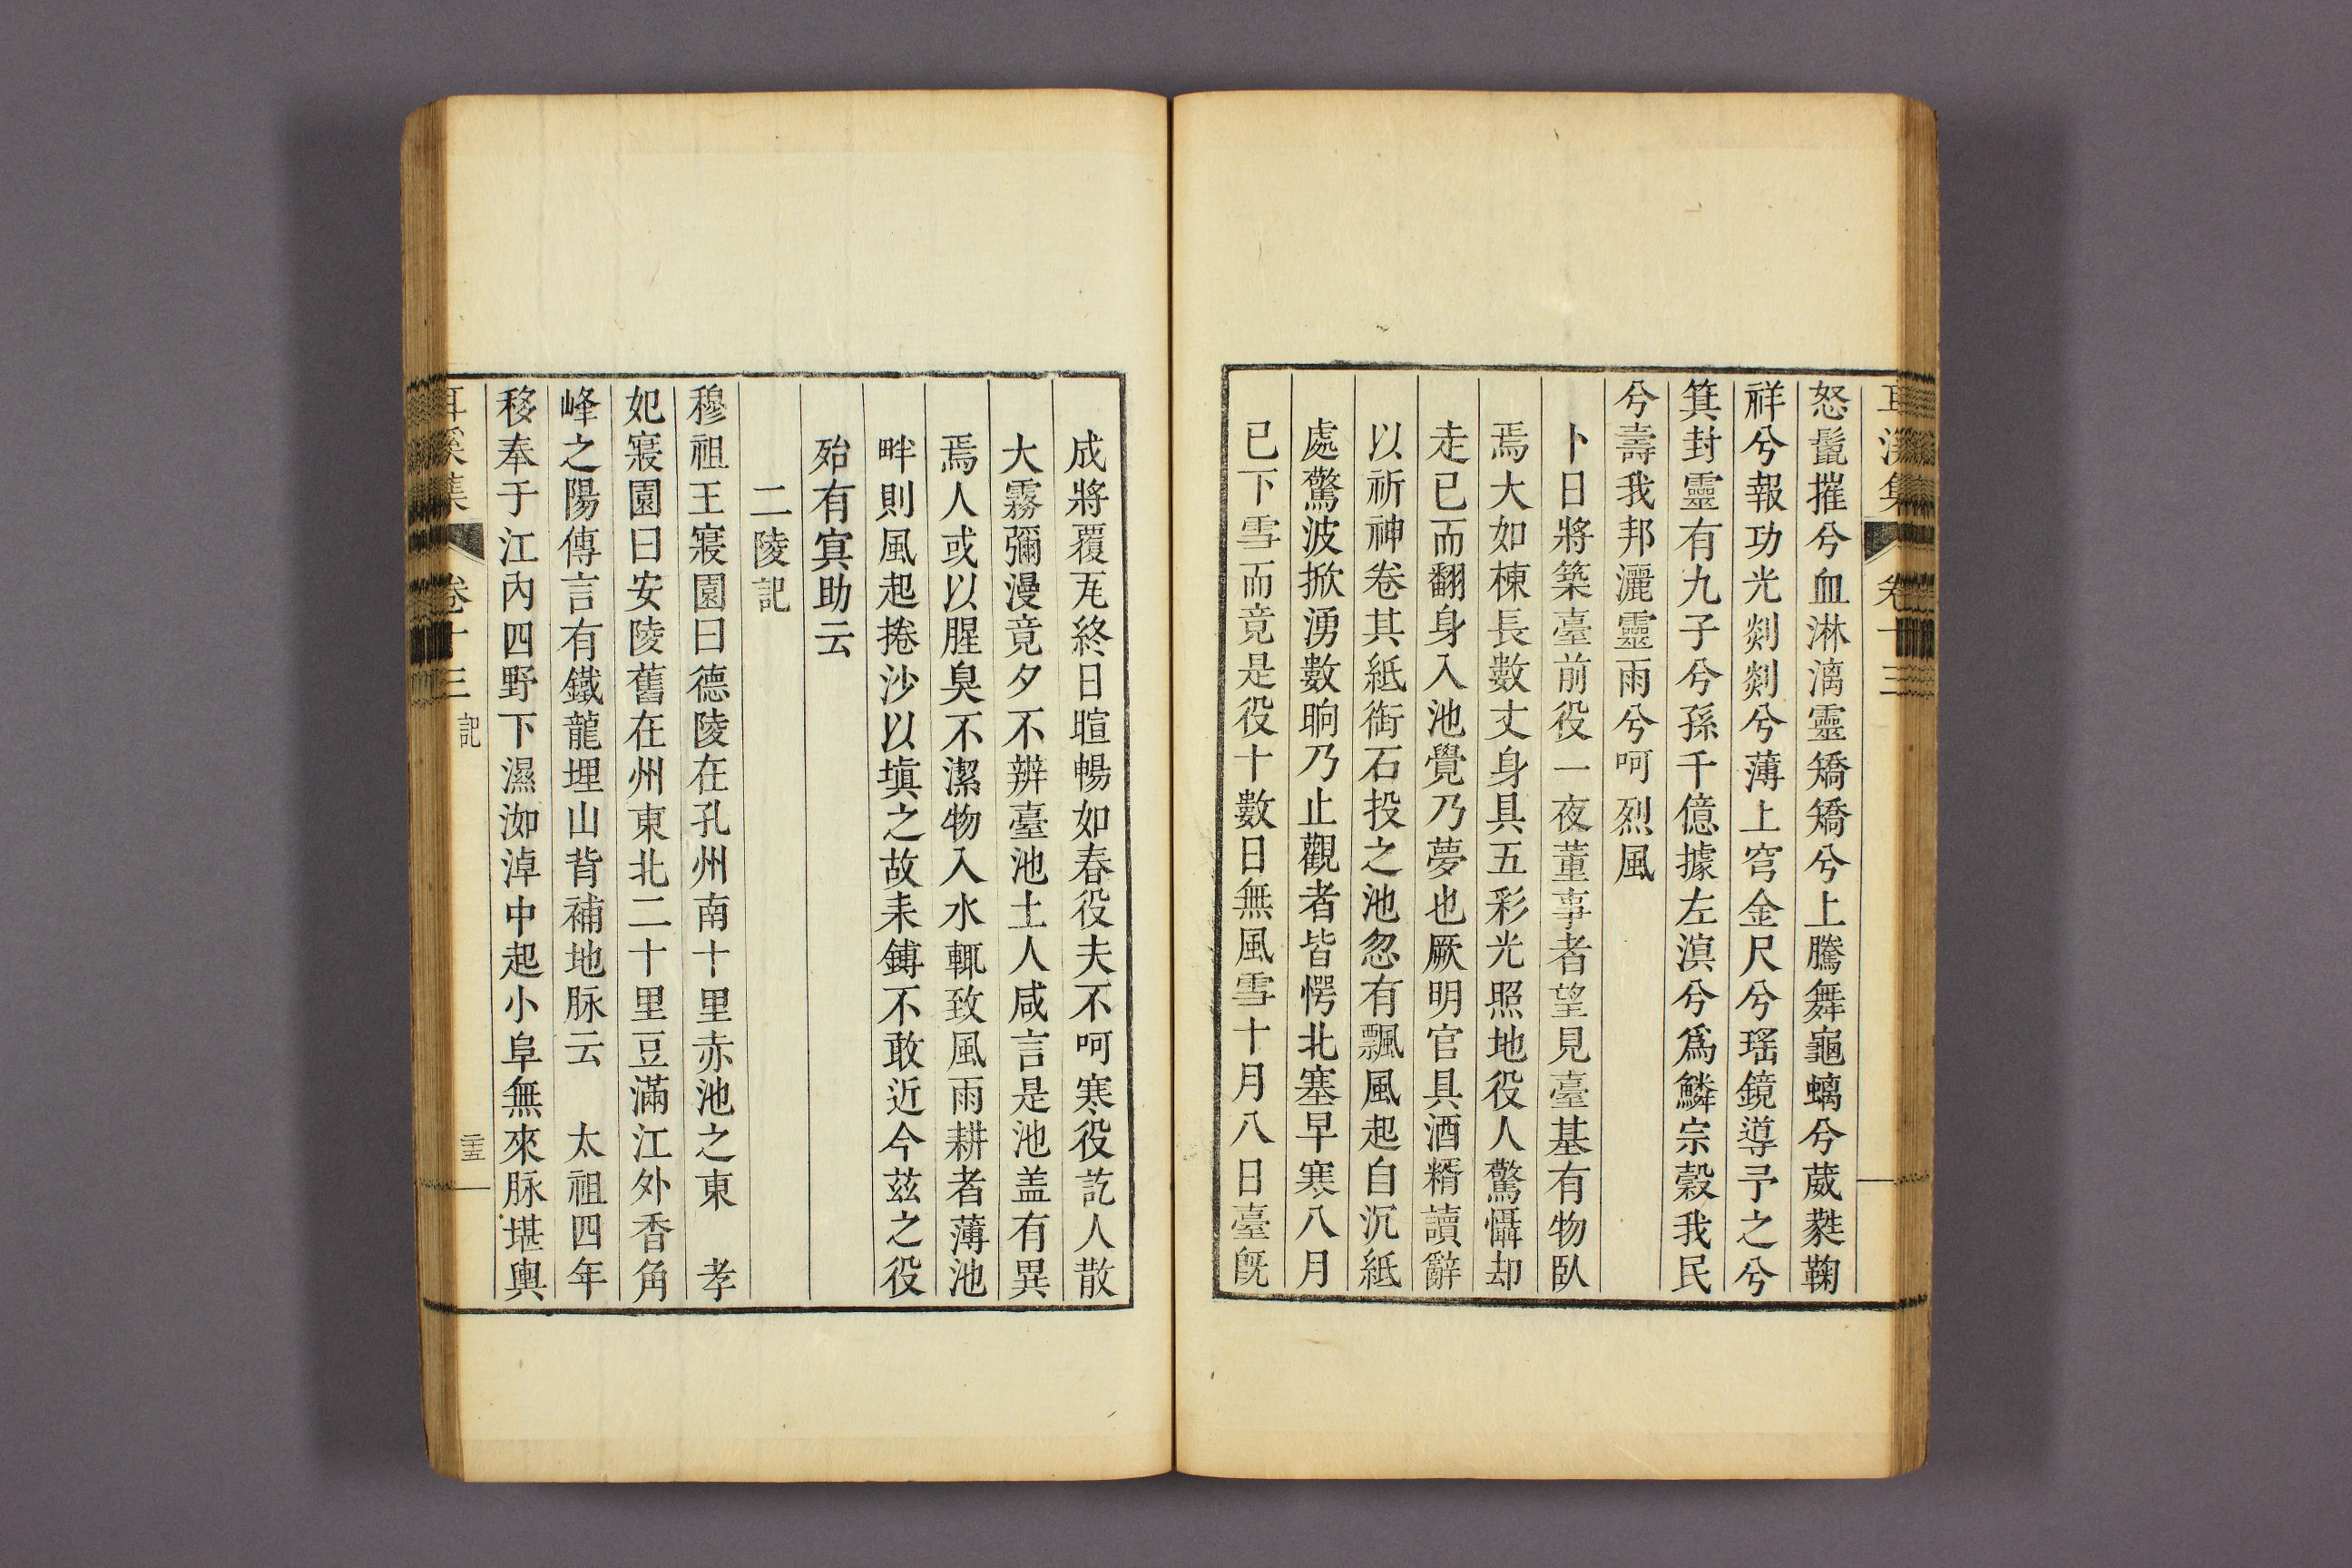 怒鬣摧兮血淋漓靈矯矯兮上騰舞龜螭兮葳蕤鞠
祥兮報功光剡剡兮薄上穹金尺兮瑤鏡導予之兮
箕封靈有九子兮孫千億據左溟兮爲鱗宗穀我民
兮壽我邦灑靈雨兮呵烈風
卜日將築臺前役一夜董事者望見臺基有物臥
焉大如棟長數丈身具五彩光照地役人驚懾却
走已而翻身入池覺乃夢也厥明官具酒糈讀辭
以祈神卷其紙銜石投之池忽有飄風起自沉紙
處驚波掀湧數晌乃止觀者皆愕北塞早寒八月
已下雪而竟是役十數日無風雪十月八日臺旣
成將覆瓦終日暄暢如春役夫不呵寒役訖人散
大霧彌漫竟夕不辨臺池土人咸言是池盖有異
焉人或以腥臭不潔物入水輒致風雨耕者薄池
畔則風起捲沙以塡之故耒鎛不敢近今玆之役
殆有寘助云
二陵記
穆祖王寢園曰德陵在孔州南十里赤池之東 孝
妃寢園曰安陵舊在州東北二十里豆滿江外香角
峰之陽傳言有鐵龍埋山背補地脉云 太祖四年
移奉于江內四野下濕洳淖中起小阜無來脉堪輿
耳溪集 卷十三 記 三十五